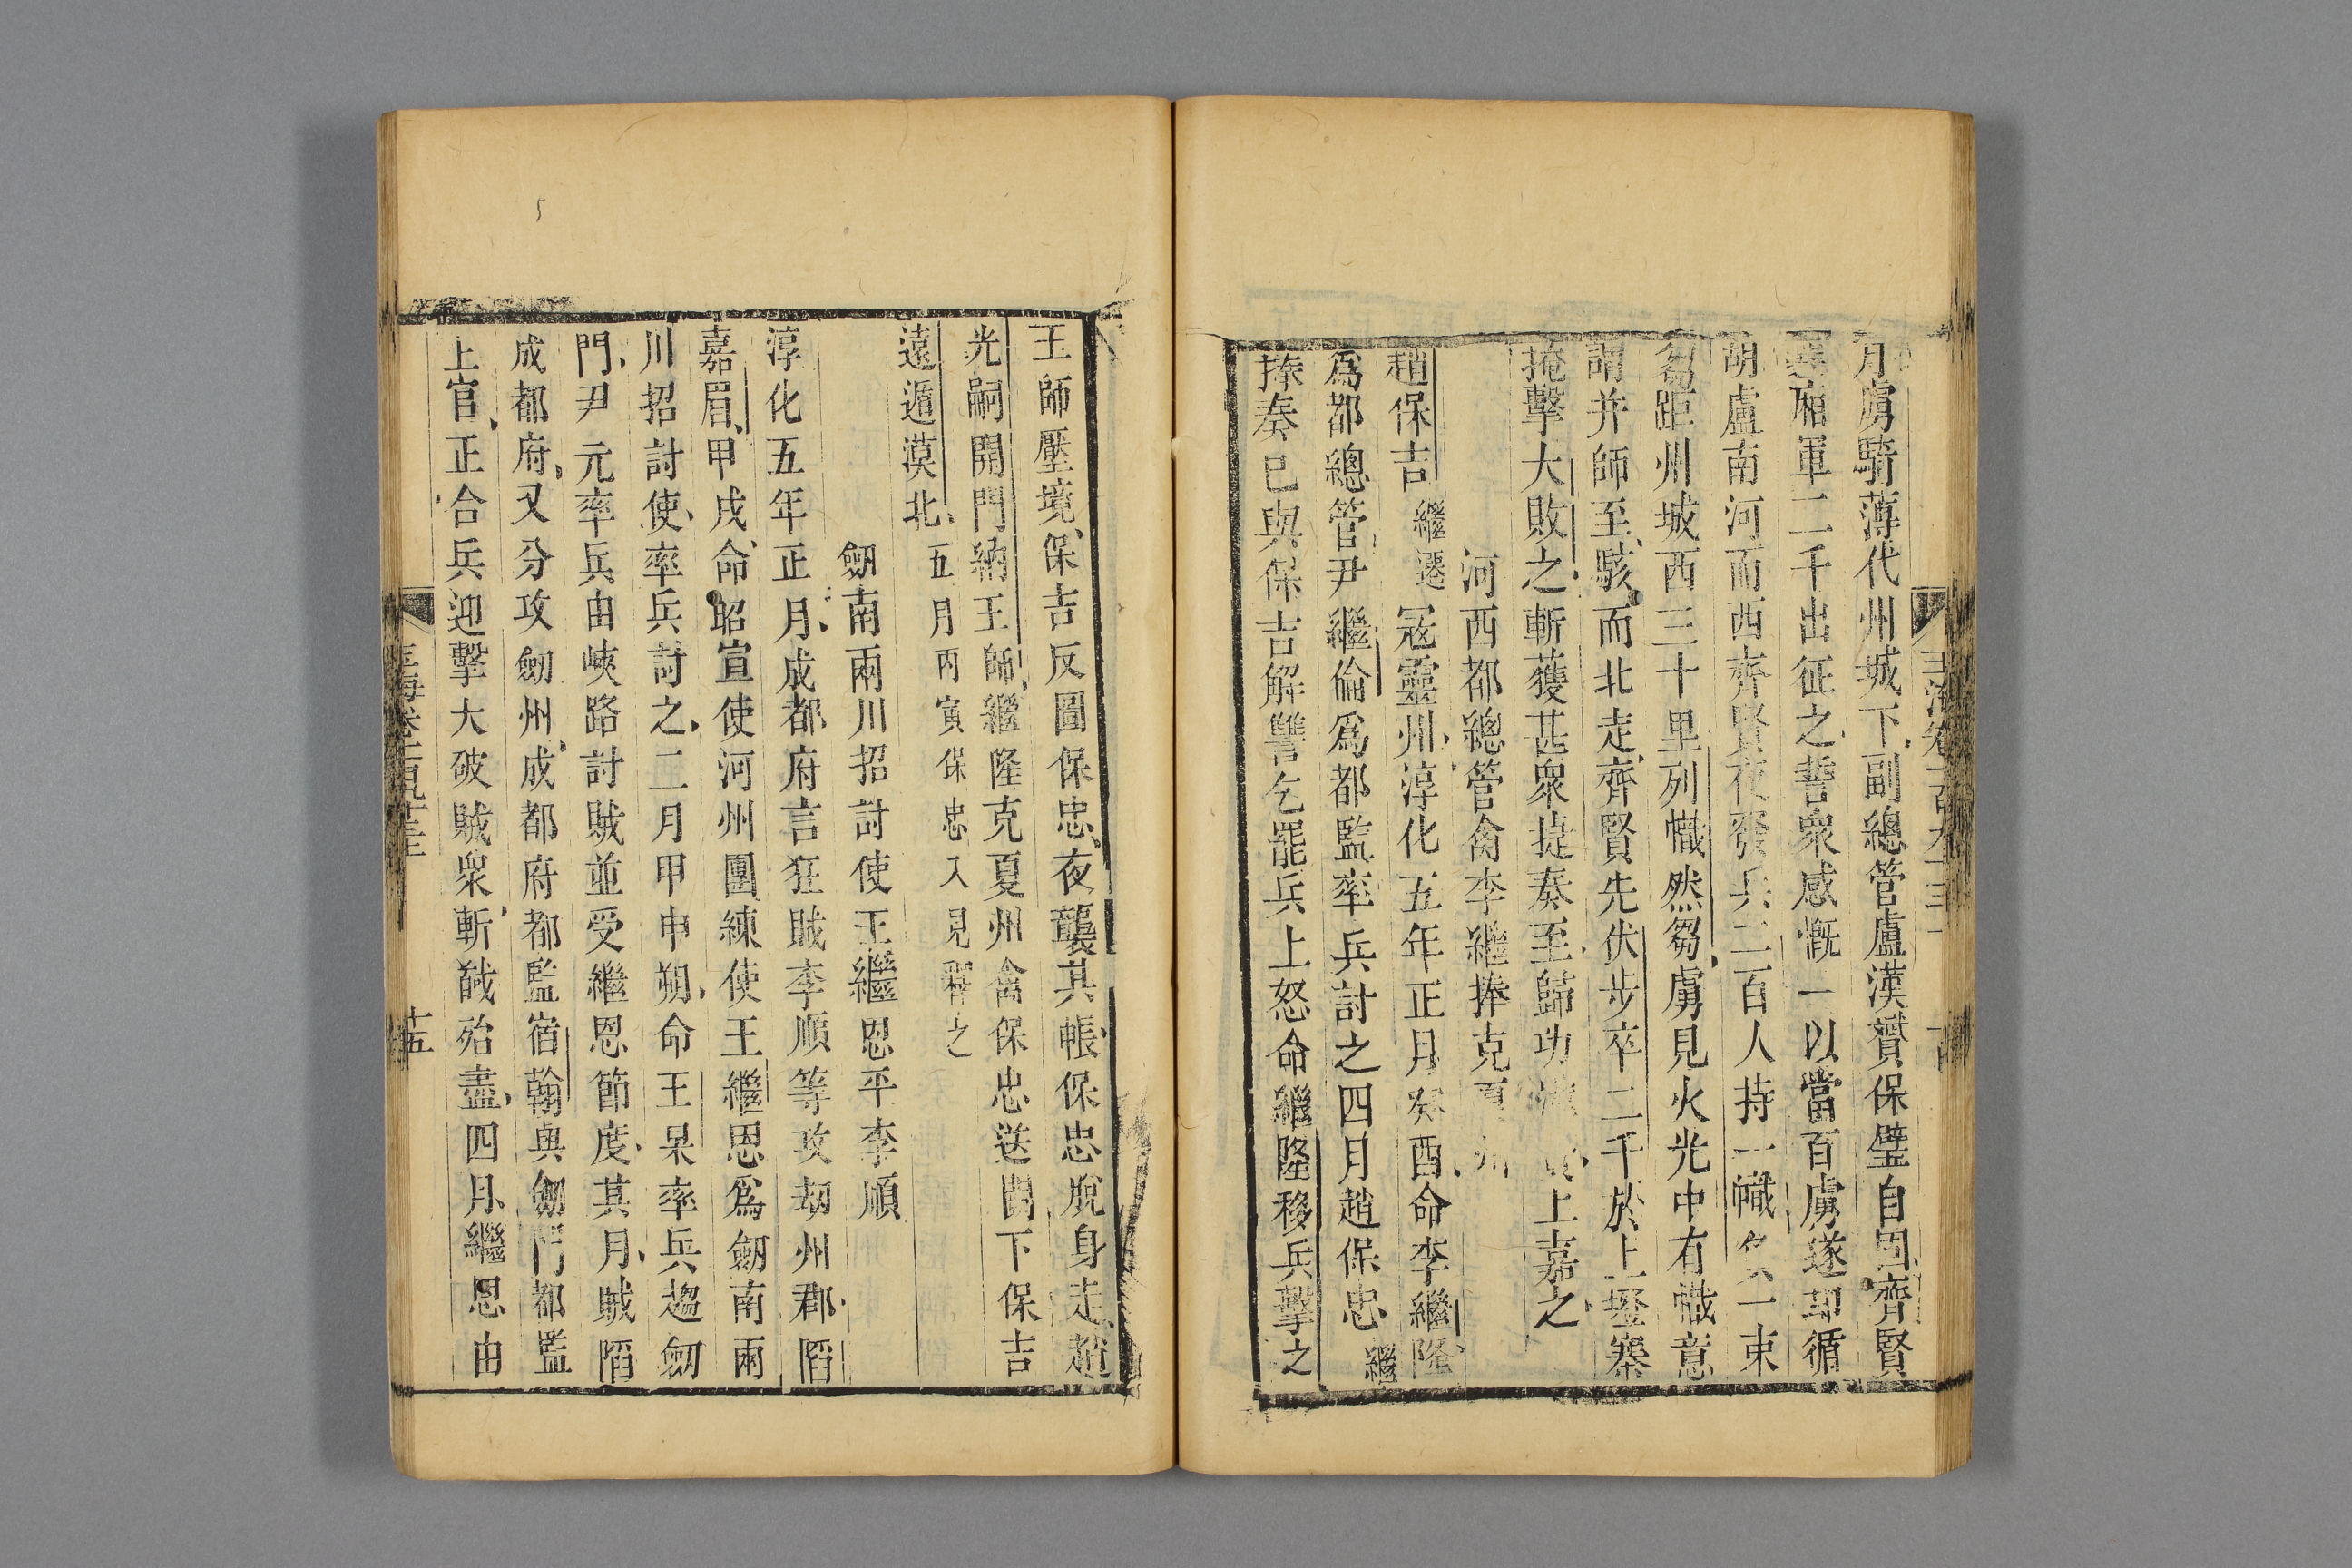 月虜騎薄代州城下副總管盧漢贇保壁自固齊賢
廂軍二千出征之誓衆感慨一以當百虜遂却循
胡盧南河而西齊賢夜發兵二百人持一幟負一束
芻距州城西三十里列幟然芻虜見火光中有幟意
謂并師至駭而北走齊賢先伏步卒二千於土墱寨
掩擊大敗之斬獲甚衆捷奏至歸功漢贇上嘉之
河西都總管禽李繼捧克夏州
趙保吉繼遷寇靈州淳化五年正月癸酉命李繼隆
爲都總管尹繼倫爲都監率兵討之四月趙保忠繼
捧奏已與保吉解讐乞罷兵上怒命繼隆移兵擊之
玉海卷一百九十三
王師壓境保吉反圖保忠夜襲其帳保忠脫身走趙
光嗣開門納王師繼隆克夏州禽保忠送闕下保吉
遠遁漠北五月丙寅保忠入見釋之
劒南兩川招討使王繼恩平李順
淳化五年正月成都府言狂賊李順等攻刼州郡陷
嘉眉甲戌命昭宣使河州團練使王繼恩爲劒南兩
川招討使率兵討之二月甲申朔命王杲率兵趨劒
門尹元率兵由峽路討賊並受繼恩節度其月賊陷
成都府又分攻劒州成都府都監宿翰與劒門都監
上官正合兵迎擊大破賊衆斬馘殆盡四月繼恩由
玉海卷一百九十三
十五